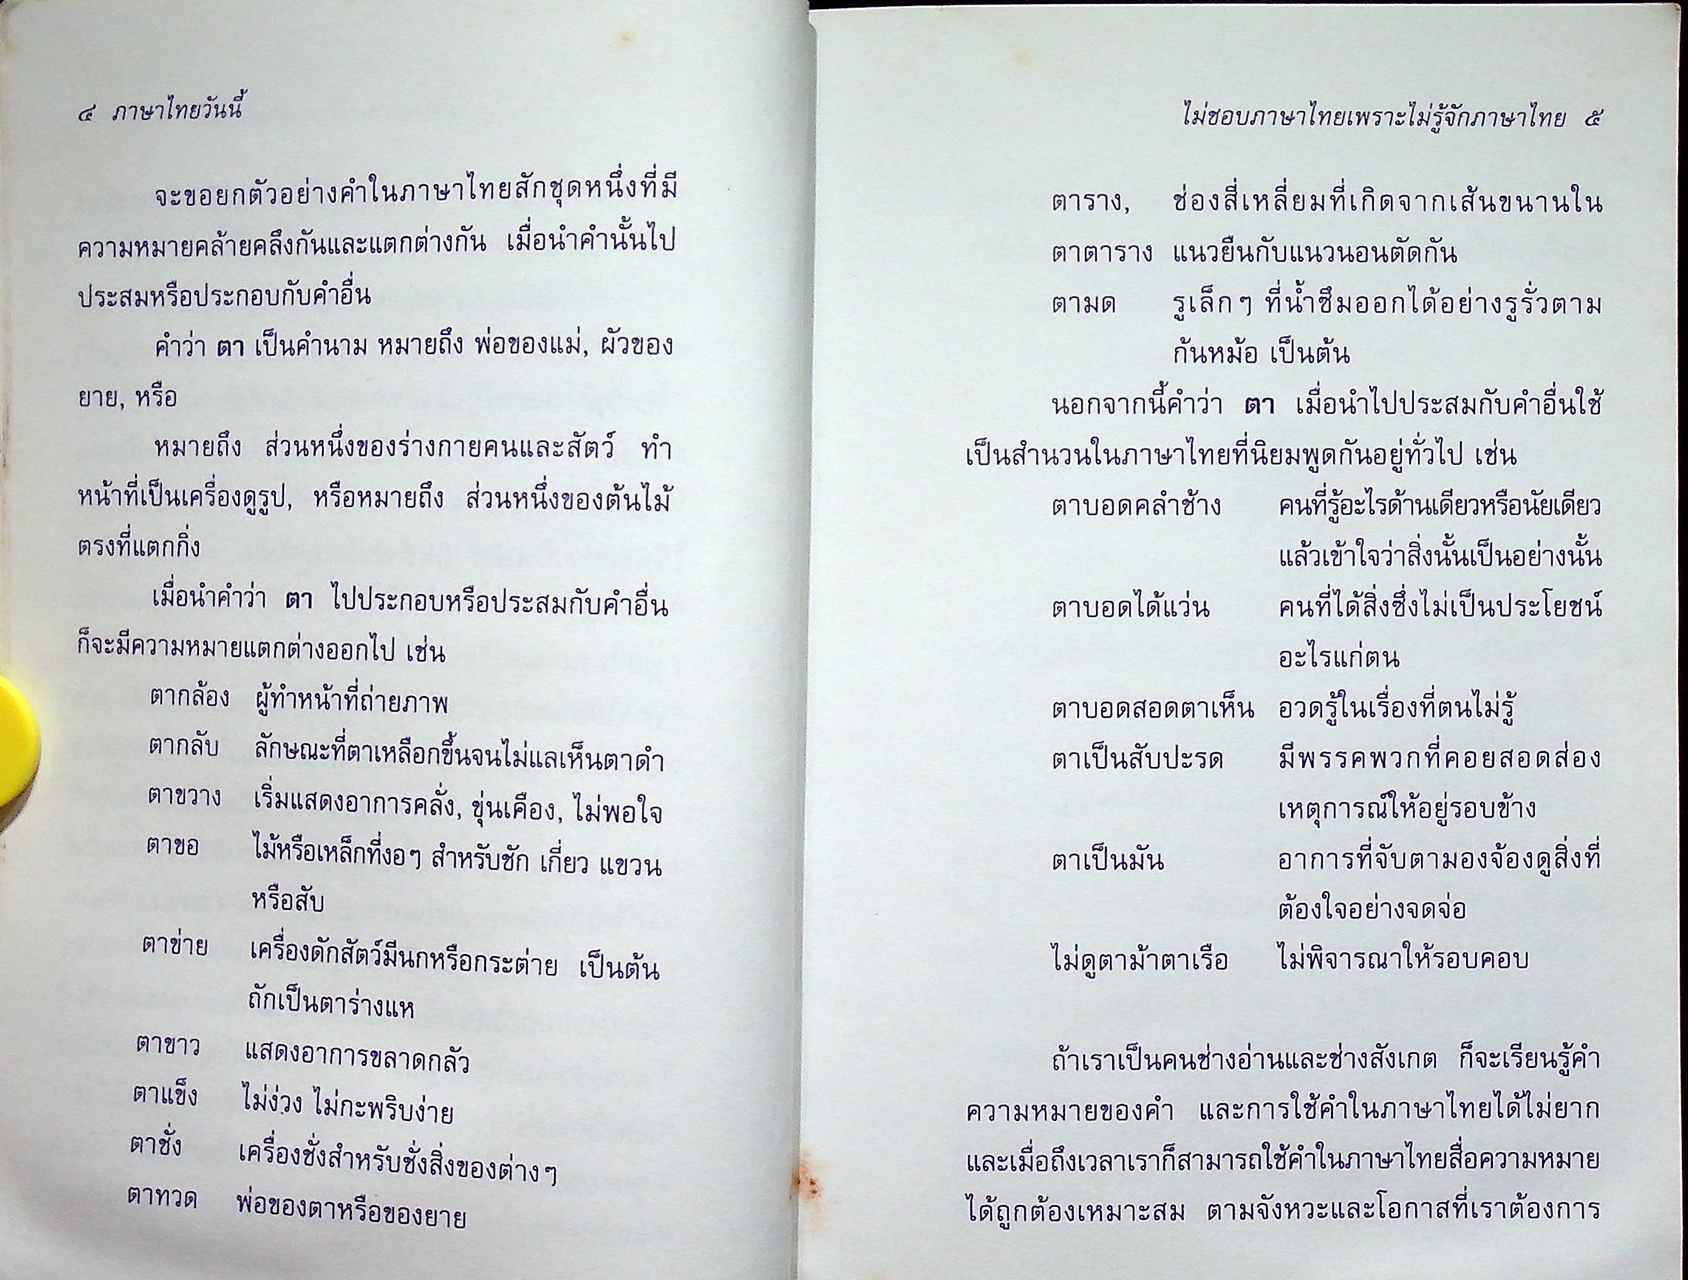 ๔ ภาษาไทยวันนี้
จะขอยกตัวอย่างคำในภาษาไทยสักชุดหนึ่งที่มี
ความหมายคล้ายคลึงกันและแตกต่างกัน เมื่อนำคำนั้นไป
ประสมหรือประกอบกับคำอื่น
คำว่า ตา เป็นคำนาม หมายถึง พ่อของแม่, ผัวของ
ยาย, หรือ
หมายถึง ส่วนหนึ่งของร่างกายคนและสัตว์ ทำ
หน้าที่เป็นเครื่องดูรูป, หรือหมายถึง ส่วนหนึ่งของต้นไม้
ตรงที่แตกกิ่ง
เมื่อนำคำว่า ตา ไปประกอบหรือประสมกับคำอื่น
ก็จะมีความหมายแตกต่างออกไป เช่น
ตากล้อง ผู้ทำหน้าที่ถ่ายภาพ
ตากลับ ลักษณะที่ตาเหลือกขึ้นจนไม่แลเห็นตาดำ
ตาขวาง เริ่มแสดงอาการคลั่ง, ขุ่นเคือง, ไม่พอใจ
ตาขอ ไม้หรือเหล็กที่งอๆ สำหรับชัก เกี่ยว แขวน
หรือสับ
ตาข่าย เครื่องดักสัตว์มีนกหรือกระต่าย เป็นต้น
ถักเป็นตาร่างแห
ตาขาว แสดงอาการขลาดกลัว
ตาแข็ง ไม่ง่วง ไม่กะพริบง่าย
ตาชั่ง เครื่องชั่งสำหรับชั่งสิ่งของต่างๆ
ตาทวด พ่อของตาหรือของยาย
ไม่ชอบภาษาไทยเพราะไม่รู้จักภาษาไทย ๕
ตาราง, ช่องสี่เหลี่ยมที่เกิดจากเส้นขนานใน
ตาตาราง แนวยืนกับแนวนอนตัดกัน
ตามด รูเล็กๆ ที่น้ำซึมออกได้อย่างรูรั่วตาม
ก้นหม้อ เป็นต้น
นอกจากนี้คำว่า ตา เมื่อนำไปประสมกับคำอื่นใช้
เป็นสำนวนในภาษาไทยที่นิยมพูดกันอยู่ทั่วไป เช่น
ตาบอดคลำช้าง คนที่รู้อะไรด้านเดียวหรือนัยเดียว
แล้วเข้าใจว่าสิ่งนั้นเป็นอย่างนั้น
ตาบอดได้แว่น คนที่ได้สิ่งซึ่งไม่เป็นประโยชน์
อะไรแก่ตน
ตาบอดสอดตาเห็น อวดรู้ในเรื่องที่ตนไม่รู้
ตาเป็นสับปะรด มีพรรคพวกที่คอยสอดส่อง
เหตุการณ์ให้อยู่รอบข้าง
ตาเป็นมัน อาการที่จับตามองจ้องดูสิ่งที่
ต้องใจอย่างจดจ่อ
ไม่ดูตาม้าตาเรือ ไม่พิจารณาให้รอบคอบ
ถ้าเราเป็นคนช่างอ่านและช่างสังเกต ก็จะเรียนรู้คำ
ความหมายของคำ และการใช้คำในภาษาไทยได้ไม่ยาก
และเมื่อถึงเวลาเราก็สามารถใช้คำในภาษาไทยสื่อความหมาย
ได้ถูกต้องเหมาะสม ตามจังหวะและโอกาสที่เราต้องการ